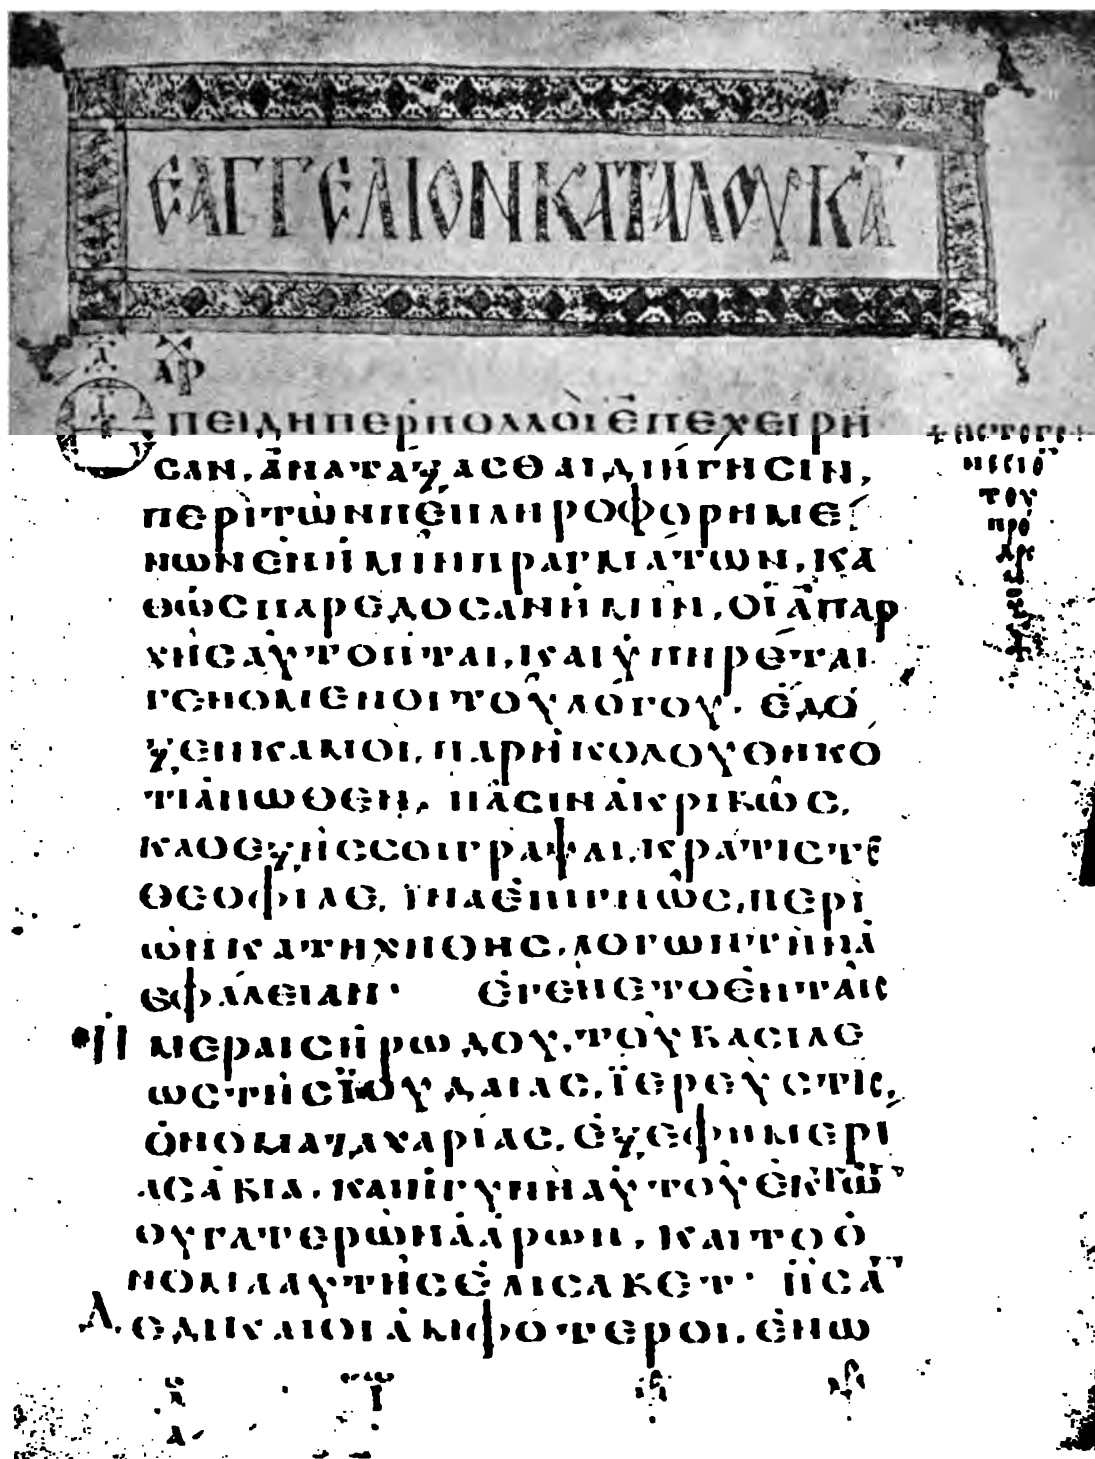 ΕΑΓΓΕΛΙΟΝ ΚΑΤΑ ΛΟΥΚΑ
ΑΡ
ΕΠΕΙΔΗΠΕΡ ΠΟΛΛΟΙ ΕΠΕΧΕΙΡΗ
ΣΑΝ, ΑΝΑΤΑΞΑΣΘΑΙ ΔΙΗΓΗΣΙΝ,
ΠΕΡΙ ΤΩΝ ΠΕΠΛΗΡΟΦΟΡΗΜΕ
ΝΩΝ ΕΝ ΗΜΙΝ ΠΡΑΓΜΑΤΩΝ, ΚΑ
ΘΩΣ ΠΑΡΕΔΟΣΑΝ ΗΜΙΝ, ΟΙ ΑΠΑΡ
ΧΗΣ ΑΥΤΟΠΤΑΙ, ΚΑΙ ΥΠΗΡΕΤΑΙ
ΓΕΝΟΜΕΝΟΙ ΤΟΥ ΛΟΓΟΥ· ΕΔΟ
ΞΕΝ ΚΑΜΟΙ, ΠΑΡΗΚΟΛΟΥΘΗΚΟ
ΤΙ ΑΝΩΘΕΝ, ΠΑΣΙΝ ΑΚΡΙΒΩΣ,
ΚΑΘΕΞΗΣ ΣΟΙ ΓΡΑΨΑΙ, ΚΡΑΤΙΣΤΕ
ΘΕΟΦΙΛΕ, ΪΝΑ ΕΠΙΓΝΩΣ, ΠΕΡΙ
ΩΝ ΚΑΤΗΧΗΘΗΣ, ΛΟΓΩΝ ΤΗΝ Α
ΣΦΑΛΕΙΑΝ· ΕΓΕΝΕΤΟ ΕΝ ΤΑΙΣ
Η ΜΕΡΑΙΣ ΗΡΩΔΟΥ, ΤΟΥ ΒΑΣΙΛΕ
ΩΣ ΤΗΣ ΪΟΥΔΑΙΑΣ, ΪΕΡΕΥΣ ΤΙΣ,
ΟΝΟΜΑ ΖΑΧΑΡΙΑΣ, ΕΞ ΕΦΗΜΕΡΙ
ΑΣ ΑΒΙΑ, ΚΑΙ Η ΓΥΝΗ ΑΥΤΟΥ ΕΚ ΤΩΝ
ΘΥΓΑΤΕΡΩΝ ΑΑΡΩΝ, ΚΑΙ ΤΟ Ο
ΝΟΜΑ ΑΥΤΗΣ ΕΛΙΣΑΒΕΤ· ΗΣΑΝ
Δ ΕΔΙΚΑΙΟΙ ΑΜΦΟΤΕΡΟΙ, ΕΝΩ